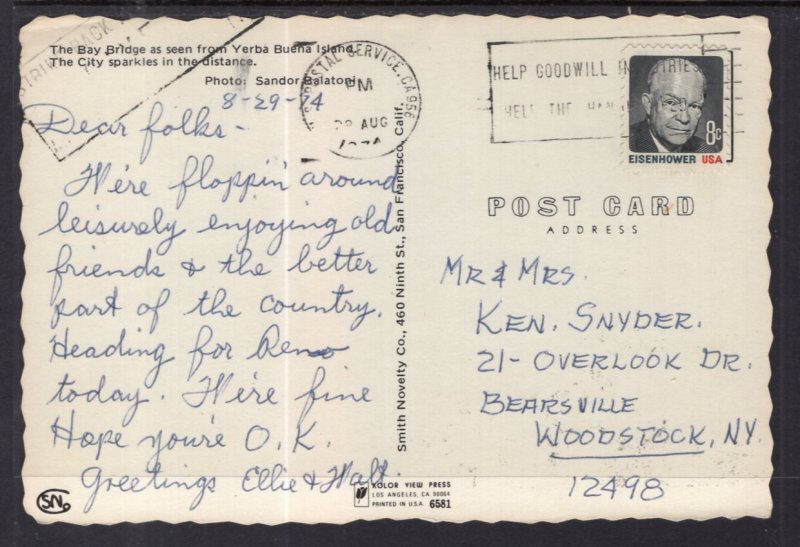 The Bay Bridge as seen from Yerba Buena Island.
The City sparkles in the distance.
Photo: Sandor Balatoni
8-29-74
Dear folks-
We're floppin' around
leisurely enjoying old
friends & the better
part of the country.
Heading for Reno
today. We're fine
Hope you're O.K.
Greetings Ellie & Walt.
SN
Smith Novelty Co., 460 Ninth St., San Francisco, Calif.
KOLOR VIEW PRESS
LOS ANGELES, CA 90064
PRINTED IN U.S.A. 6581
POSTAL SERVICE, CA 956
PM
AUG
HELP GOODWILL
HELP THE
8c
EISENHOWER USA
POST CARD
ADDRESS
MR & MRS.
KEN. SNYDER.
21- OVERLOOK DR.
BEARSVILLE
WOODSTOCK, NY.
12498